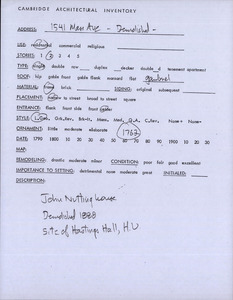 CAMBRIDGE ARCHITECTURAL INVENTORY
ADDRESS: 1541 Mass Ave - Demolished -
USE: residential commercial religious
STORIES: 1 2 3 4 5
TYPE: single double row duplex decker double d tenement apartment
ROOF: hip gable front gable flank mansard flat gambrel
MATERIAL: frame brick SIDING: original subsequent
PLACEMENT: nature to street broad to street square
ENTRANCE: flank front side front
STYLE: Col., Grk.Rev., Ital., Mans., Med., Q.A., C.Rev. None+ None-
ORNAMENT: little moderate elaborate
DATE: 1790 1800 10 20 30 1763 60 70 80 90 1900 10 20 30
MAP:
REMODELING: drastic moderate minor CONDITION: poor fair good excellent
IMPORTANCE TO SETTING: detrimental some moderate great INITIALED:
DESCRIPTION:
John Nutting house
Demolished 1888
Site of Hastings Hall, H.U